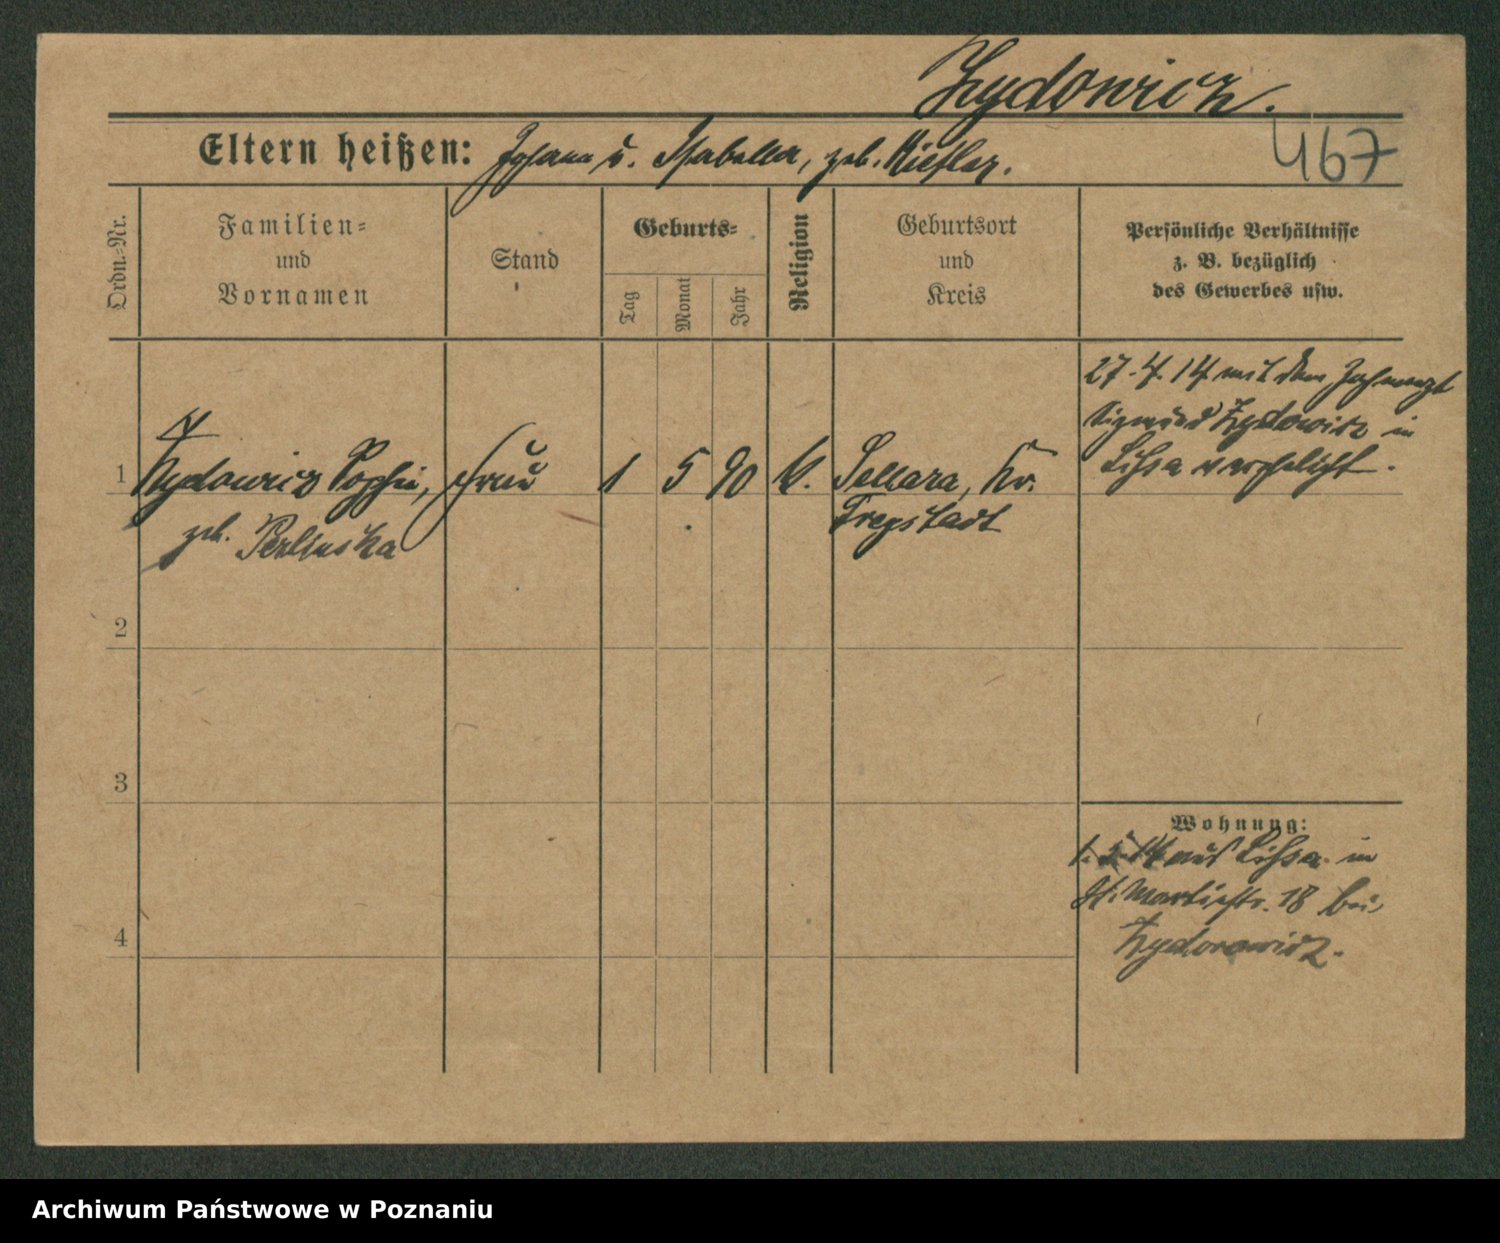 Zydowicz.
467
Eltern heißen: Johann u. Isabella, geb. Kiesler.
Ordn.-Nr.
Familien-
und
Vornamen
Stand
Geburts-
Tag
Monat
Jahr
Religion
Geburtsort
und
Kreis
Persönliche Verhältnisse
z. B. bezüglich
des Gewerbes usw.
27.4.14 mit dem Zahnarzt
Sigmund Zydowicz in
Lissa verehelicht.
1 Zydowicz Sophie, Frau 1 5 90 k. Kr.
geb. Freystadt
2
3
4
Wohnung:
aus Lissa in
St. Martinstr. 18 bei
Zydorowicz.
Archiwum Państwowe w Poznaniu